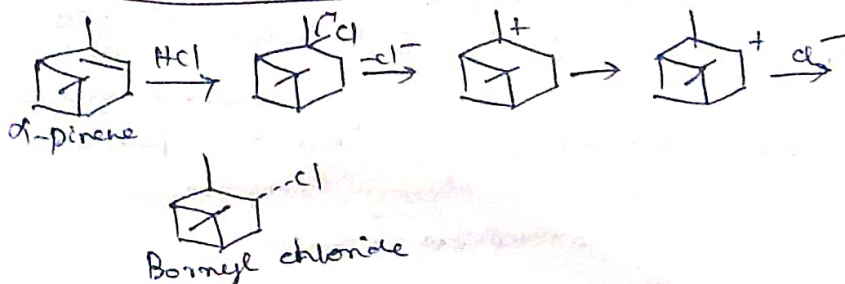 HCl
Cl
-Cl⁻
+
+
Cl⁻
α-pinene
Cl
Bornyl chloride